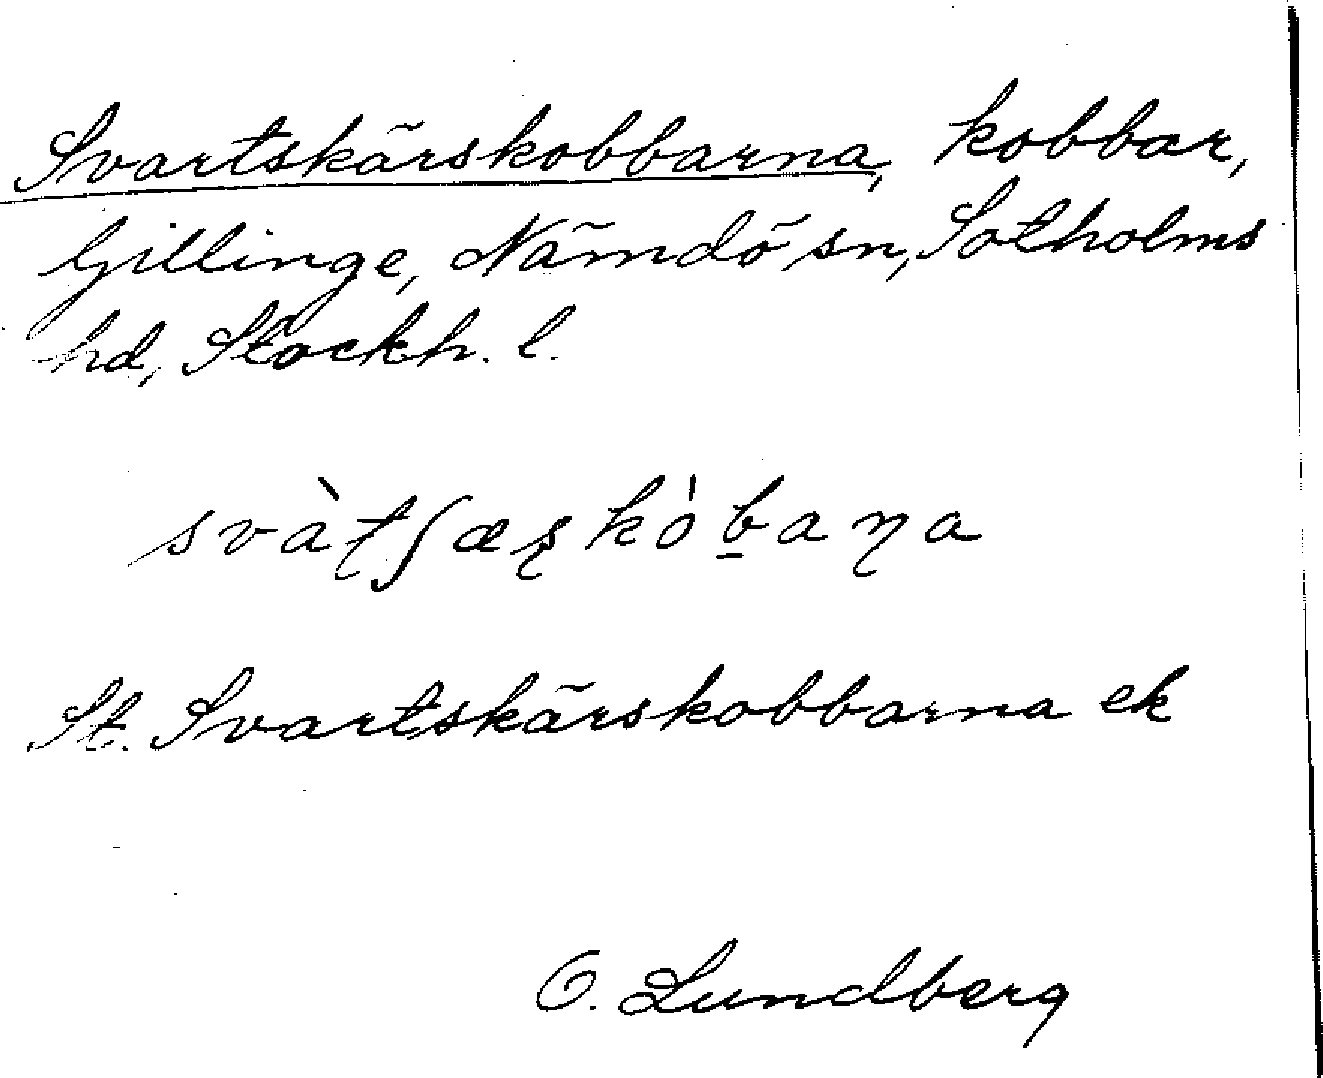 Svartskärskobbarna, kobbar,
Gillinge, Nämdö sn, Sotholms
hd, Stockh. l.
svàʈʃæʂkò̍b̲aɳa
St. Svartskärskobbarna ek
O. Lundberg